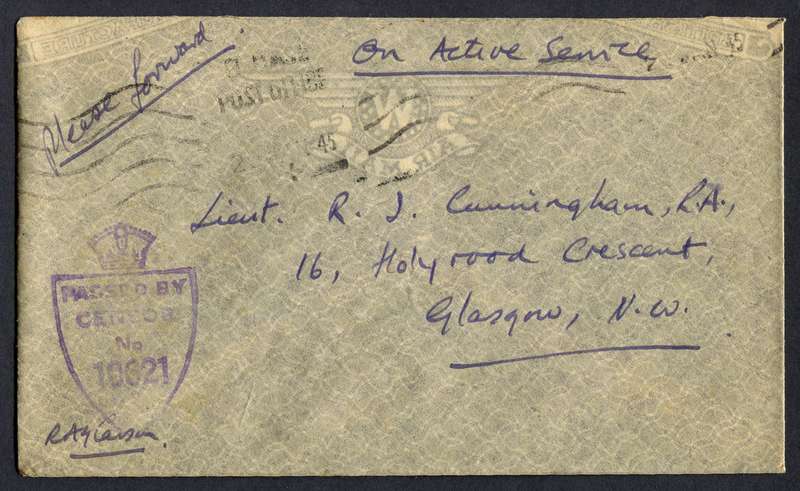 Please forward
On Active Service
POST OFFICE
45
45
Lieut. R. J. Cunningham, R.A.,
16, Holyrood Crescent,
Glasgow, N.W.
PASSED BY
CENSOR
No
10621